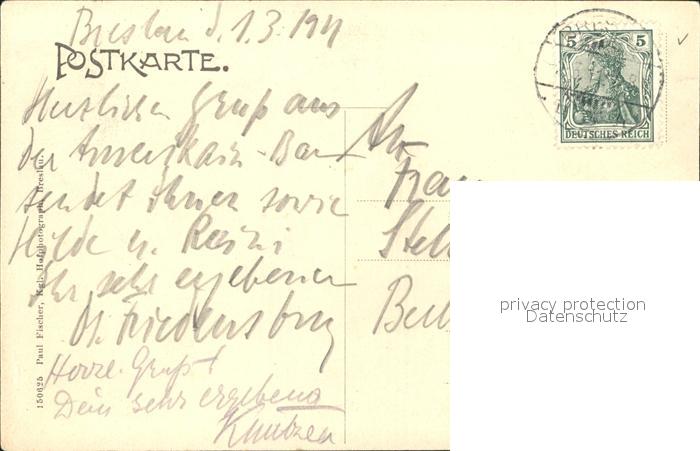 Breslau d. 1.3.1911
POSTKARTE.
Herzlichen Gruß aus
der Amerikain-Bar
sendet Ihnen sowie
Hilde u. Reini
Ihr sehr ergebener
Dr. Friedensburg
Herzl. Gruß
Dein sehr ergebener
An
Frau
Stell
Berl
5 5
DEUTSCHES REICH
BRES
150625 Paul Fischer, Kgl. Hofphotograph, Breslau.
privacy protection
Datenschutz